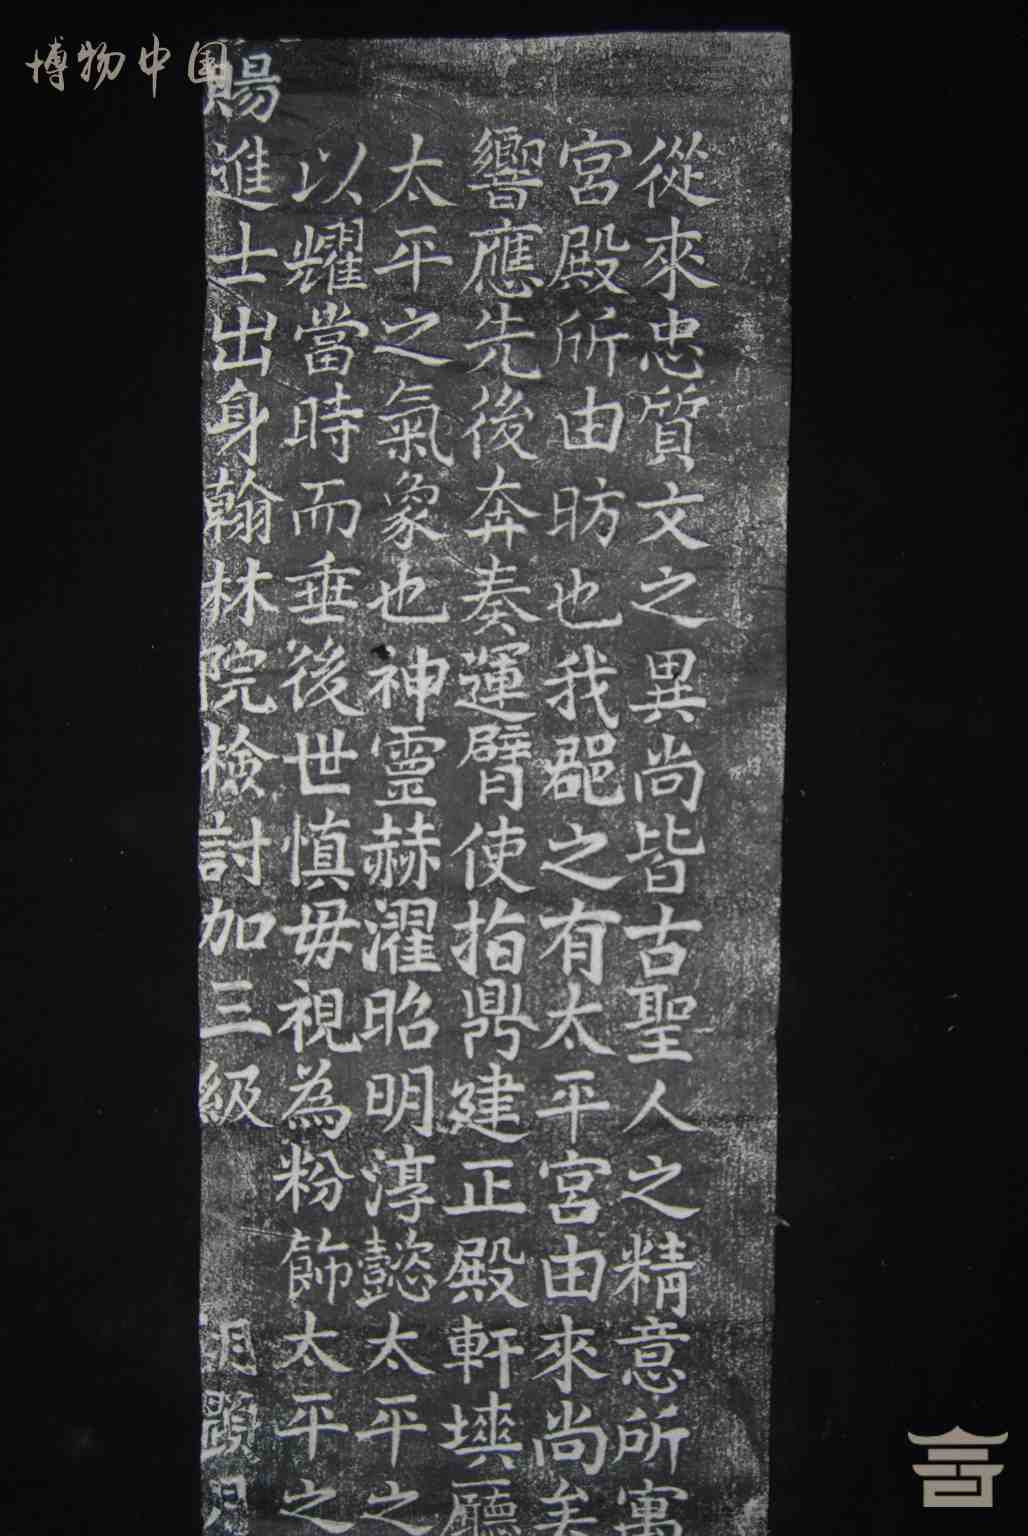 博物中国
從來忠質文之異尚皆古聖人之精意所寓
宮殿所由昉也我郡之有太平宮由來尚矣
響應先後奔奏運臂使指鼎建正殿軒墀廳
太平之氣象也神靈赫濯昭明淳懿太平之
以耀當時而垂後世慎毋視為粉飾太平之
賜進士出身翰林院檢討加三級